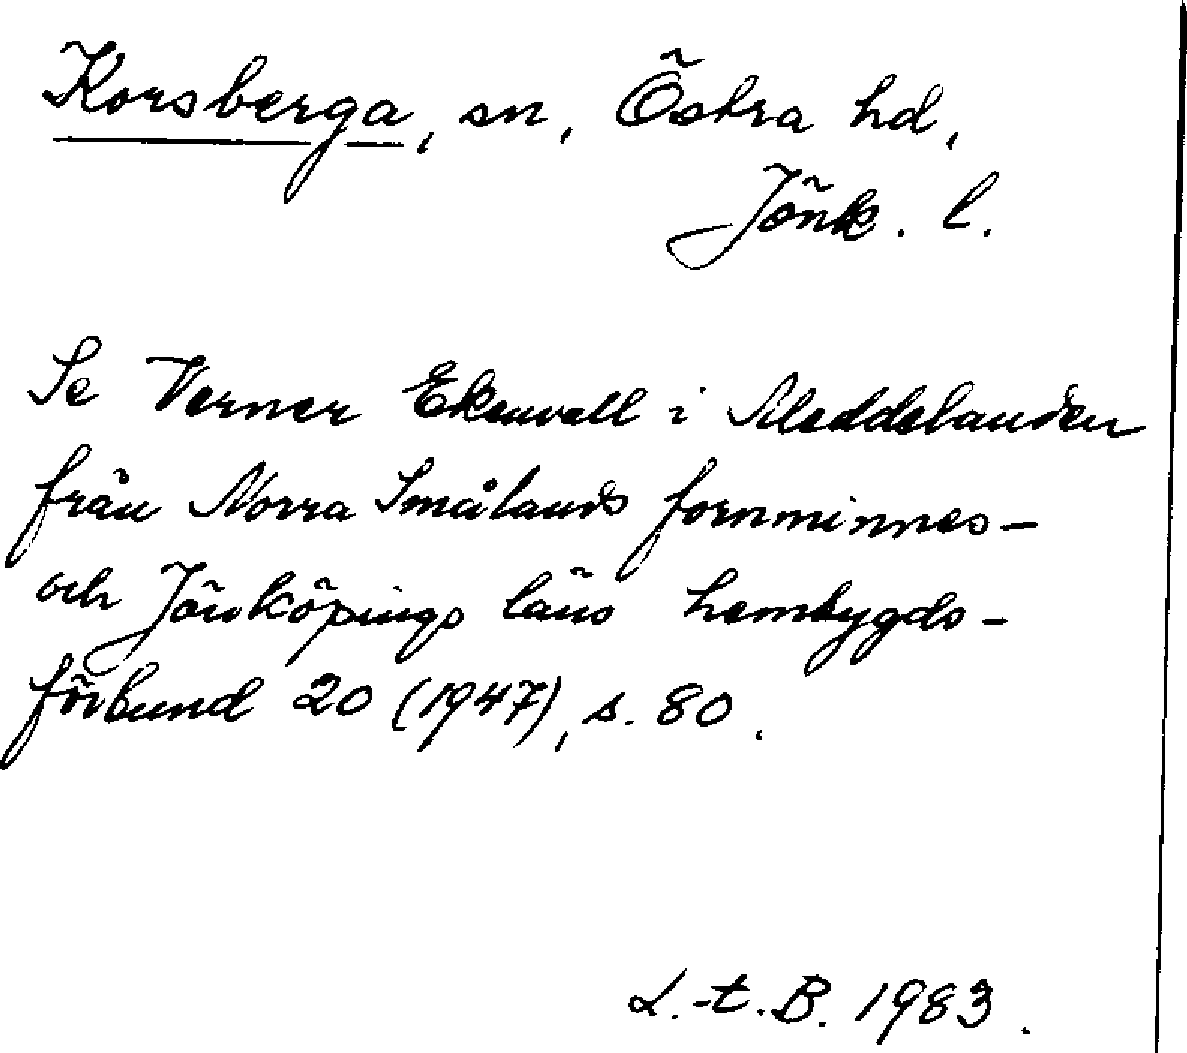 Korsberga, sn, Östra hd,
Jönk. l.
Se Verner Ekenvall i Meddelanden
från Norra Smålands fornminnes-
och Jönköpings läns hembygds-
förbund 20 (1947), s. 80.
L.-t. B. 1983.